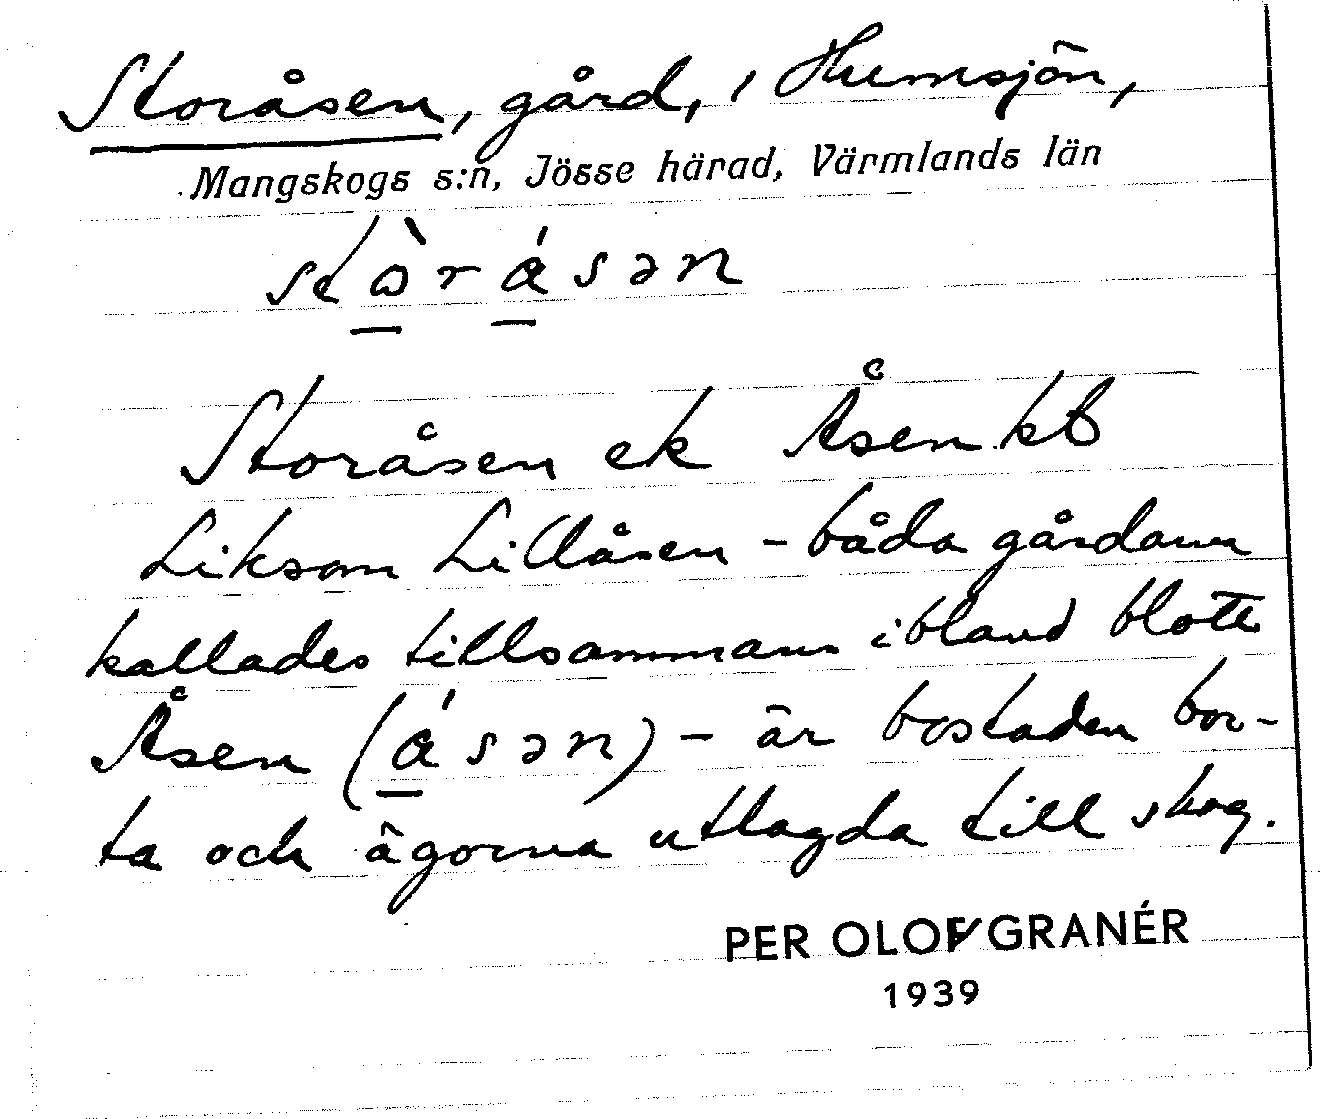 Storåsen, gård, i Humsjön,
Mangskogs s:n, Jösse härad, Värmlands län
stòrásən
Storåsen ek Åsen kb
Liksom Lillåsen - båda gårdarna
kallades tillsammans ibland blott
Åsen (ásən) - är bostaden bor-
ta och ägorna utlagda till skog.
PER OLOF GRANÉR
1939